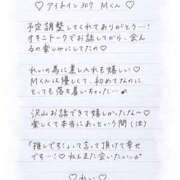 ♡ アイナイン 307 Mくん ♡
予定調整してくれてありがとう…!
オキニトークでお話してから、会え
るの楽しみにしてたの♡
れいの為に差し入れも嬉しい♡
Mくんは優しくて、初めてなのに
とっても落ち着いちゃった…
沢山お話できて嬉しかったな〜
楽しくて本当にあっという間(泣)
「推しできた!」って言って頂けて幸せ
です…♡ れんまた会いたいっ
♡れい♡